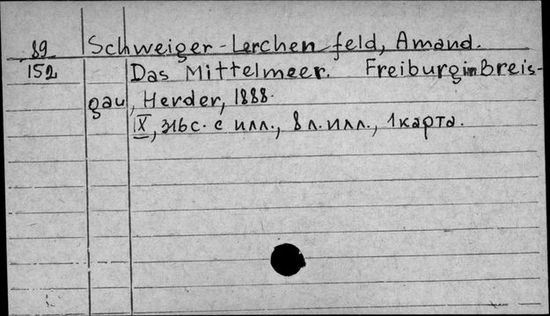 89 Schweiger-Lerchenfeld, Amand.
152 Das Mittelmeer. Freiburg in Breis-
gau, Herder, 1888.
IX, 316 с. с илл., 8 л. илл., 1 карта.